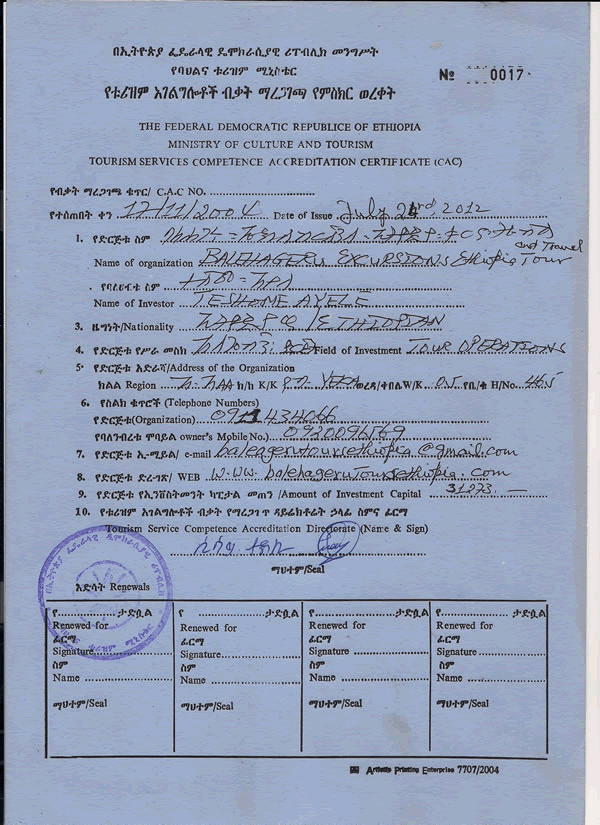 በኢትዮጵያ ፌዴራላዊ ዴሞክራሲያዊ ሪፐብሊክ መንግሥት
የባህልና ቱሪዝም ሚኒስቴር
№ 0017
የቱሪዝም አገልግሎቶች ብቃት ማረጋገጫ የምስክር ወረቀት
THE FEDERAL DEMOCRATIC REPUBLICE OF ETHIOPIA
MINISTRY OF CULTURE AND TOURISM
TOURISM SERVICES COMPETENCE ACCREDITATION CERTIFICATE (CAC)
የብቃት ማረጋገጫ ቁጥር/ C.A.C NO.
የተሰጠበት ቀን 17/11/2004 Date of Issue July 24rd, 2012
1. የድርጅቱ ስም
and Travel
Name of organization BALEHAGERU EXCURSIONS Ethiopia Tour
የባለሀብቱ ስም ተሾመ አየለ
Name of Investor TESHOME AYELE
3. ዜግነት/Nationality ኢትዮጵያዊ /ETHIOPIAN
4. የድርጅቱ የሥራ መስክ Field of Investment TOUR OPERATIONS
5. የድርጅቱ አድራሻ/Address of the Organization
ክልል Region አ.አ ክ/ከ K/K YEKA ወረዳ/ቀበሌ W/K 05 የቤ/ቁ H/No. 465
6. የስልክ ቁጥሮች (Telephone Numbers)
የድርጅቱ(Organization) 0911434066
የባለንብረቱ ሞባይል owner's Mobile No.) 0920094569
7. የድርጅቱ ኢ-ሜይል/ e-mail baleagerutoursethiopia@gmail.com
8. የድርጅቱ ድረ-ገጽ/ WEB www.balehagerutoursethiopia.com
9. የድርጅቱ የኢንቨስትመንት ካፒታል መጠን /Amount of Investment Capital 31273.—
10. የቱሪዝም አገልግሎቶች ብቃት የማረጋገጥ ዳይሬክቶሬት ኃላፊ ስምና ፊርማ
Tourism Service Competence Accreditation Directorate (Name & Sign)
ማህተም/Seal
እድሳት Renewals
የ ታድሷል የ ታድሷል የ ታድሷል የ ታድሷል
Renewed for Renewed for Renewed for Renewed for
ፊርማ ፊርማ ፊርማ ፊርማ
Signature Signature Signature Signature
ስም ስም ስም ስም
Name Name Name Name
ማህተም/Seal ማህተም/Seal ማህተም/Seal ማህተም/Seal
Artistic Printing Enterprise 7707/2004